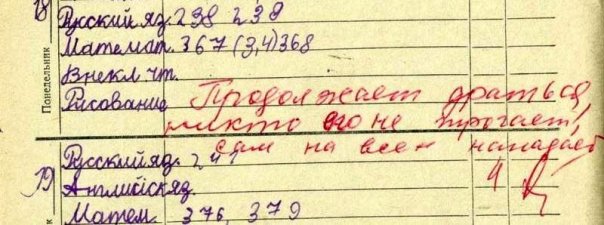 18
Понедельник
Русский яз. 238 239
Математ. 367 (3,4) 368
Внекл чт.
Рисование Продолжает драться,
никто его не трогает,
сам на всех нападает
19
Русский яз. 241
Английск яз. 4
Матем. 376, 379
к